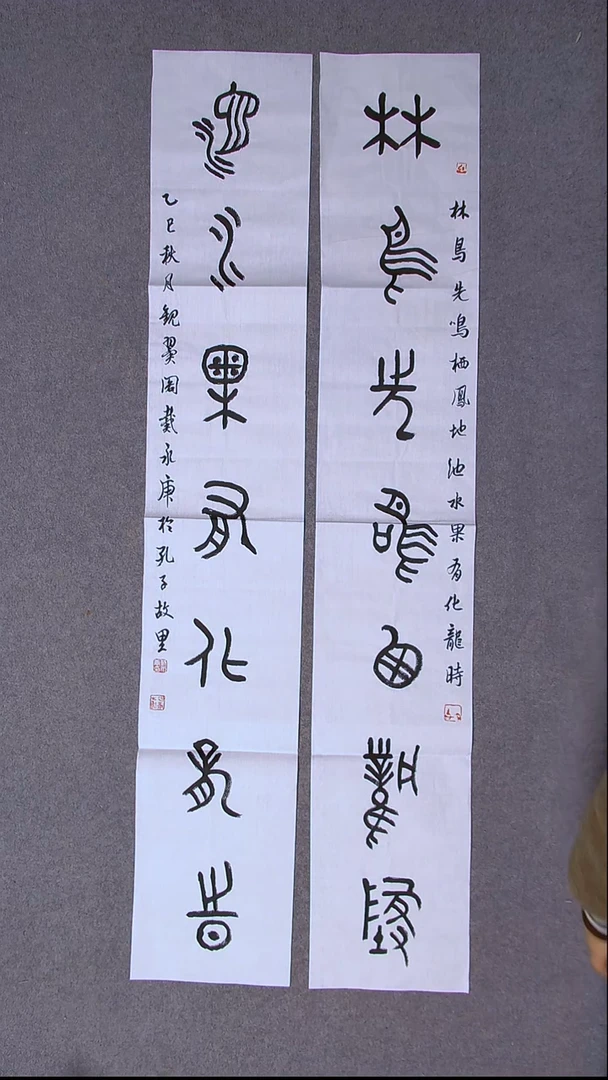 林鳥先鳴栖鳳地池水果有化龍時
林鳥先鳴栖鳳地
池水果有化龍時
乙巳秋月觀翼閣戴永庚於孔子故里